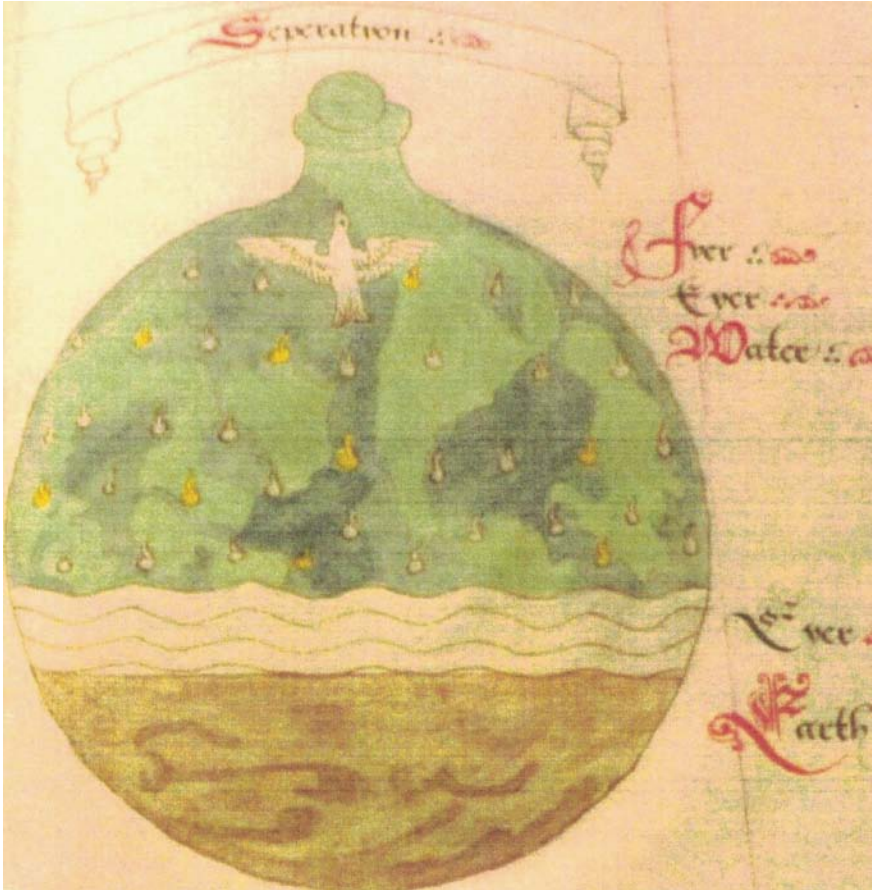 Seperation
Fyer
Eyer
Water
Eyer
Earth